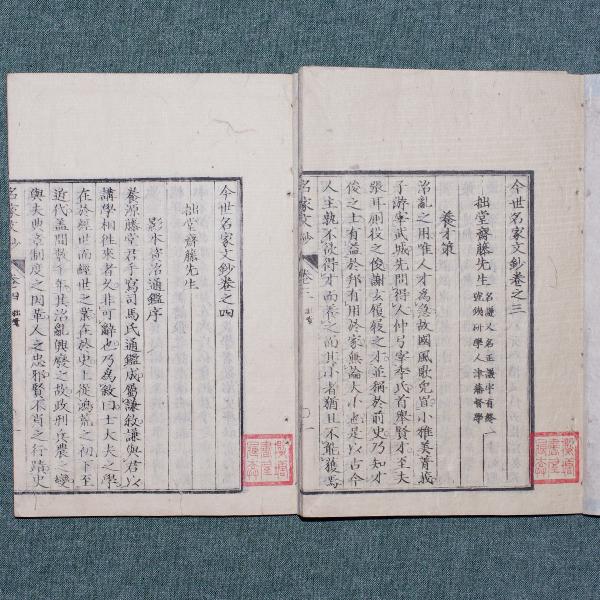 今世名家文鈔卷之三
拙堂齋藤先生
名謙又名正謙字有終
號鐵研學人津藩督學
養才策
治亂之用唯人才為急故國風歌兔罝小雅美菁莪
子游宰武城先問得人仲弓宰季氏首舉賢才至夫
張耳廝役之俊謝玄履屐之才並稱於前史乃知才
俊之士有益於邦有用於家無論大小也是以古今
人主孰不欲得才而養之其小者人且不能獲焉
名家文鈔
卷三
拙堂
今世名家文鈔卷之四
拙堂齋藤先生
影本資治通鑑序
養源藤堂君手寫司馬氏通鑑成屬謙敘謙與君以
講學相徃來者久非可辭也乃為敘曰士大夫之學
在於經世而經世之業在於史上從鴻荒之初下至
近代蓋閒數千年其治亂興廢之故政刑兵農之變
與夫典章制度之因革人之忠邪賢不肖之行蹟史
名家文鈔
卷四
拙堂